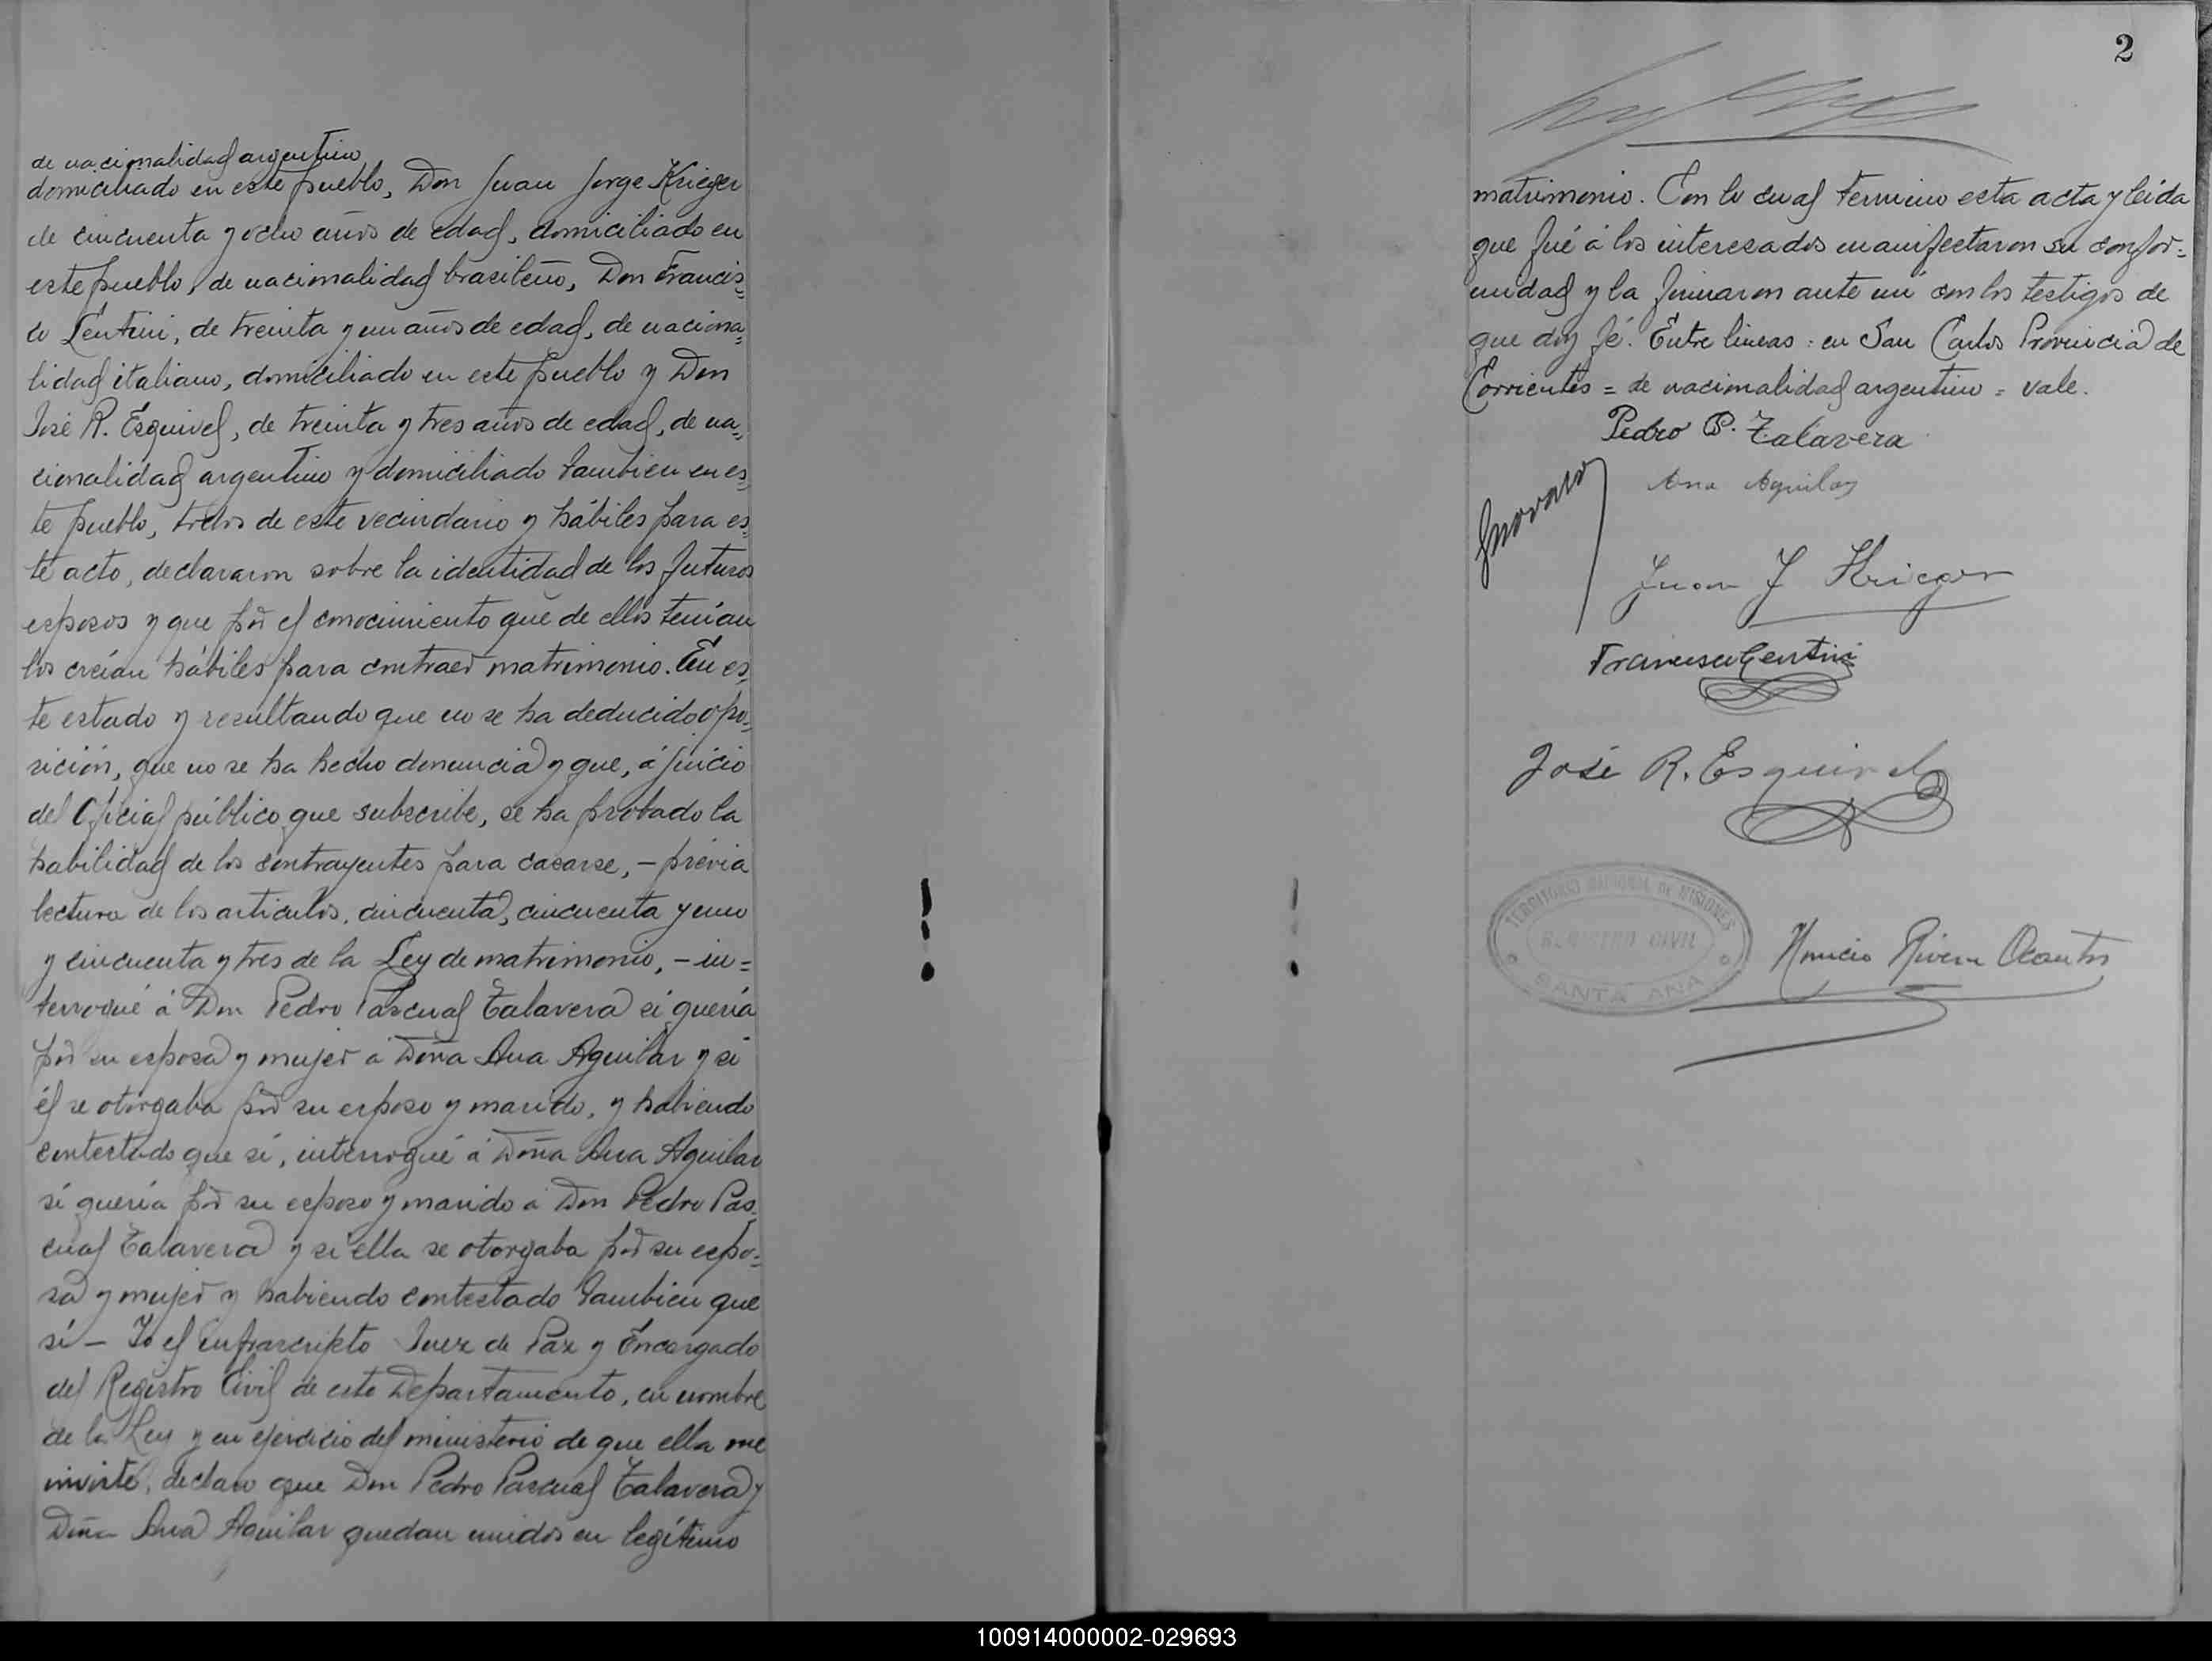 de nacionalidad argentino
domiciliado en este pueblo, Don Juan Jorge Krieger
de cincuenta y ocho años de edad, domiciliado en
este pueblo, de nacionalidad brasileño, Don Francis=
co Lentini, de treinta y un años de edad, de naciona=
lidad italiano, domiciliado en este pueblo y Don
José R. Esquivel, de treinta y tres años de edad, de na=
cionalidad argentino y domiciliado tambien en es=
te pueblo, todos de este vecindario y hábiles para es=
te acto, declararon sobre la identidad de los futuros
esposos y que por el conocimiento que de ellos tenían
los creían hábiles para contraer matrimonio. En es=
te estado y resultando que no se ha deducido opo=
sición, que no se ha hecho denuncia y que, á juicio
del Oficial público que subscribe, se ha probado la
habilidad de los contrayentes para casarse, – prévia
lectura de los artículos, cincuenta, cincuenta y uno
y cincuenta y tres de la Ley de matrimonio, – in=
terrogué á Don Pedro Pascual Talavera si quería
por su esposa y mujer á Doña Ana Aguilar y si
él se otorgaba por su esposo y marido, y habiendo
contestado que sí, interrogué á Doña Ana Aguilar
si quería por su esposo y marido á Don Pedro Pas=
cual Talavera y si ella se otorgaba por su espo=
sa y mujer y habiendo contestado tambien que
sí – Yo el infrascripto Juez de Paz y Encargado
del Registro Civil de este Departamento, en nombre
de la Ley y en ejercicio del ministerio de que ella me
inviste, declaro que Don Pedro Pascual Talavera y
Doña Ana Aguilar quedan unidos en legítimo
2
matrimonio. Con lo cual termino esta acta y leida
que fué á los interesados manifestaron su confor=
midad y la firmaron ante mí con los testigos de
que doy fé. Entre lineas: en San Carlos Provincia de
Corrientes = de nacionalidad argentino = vale.
Pedro P. Talavera
Ana Aguilar
Juan J Krieger
Francisco Lentini
José R. Esquivel
TERRITORIO NACIONAL DE MISIONES
REGISTRO CIVIL
SANTA ANA
Rivera Ocantos
100914000002-029693